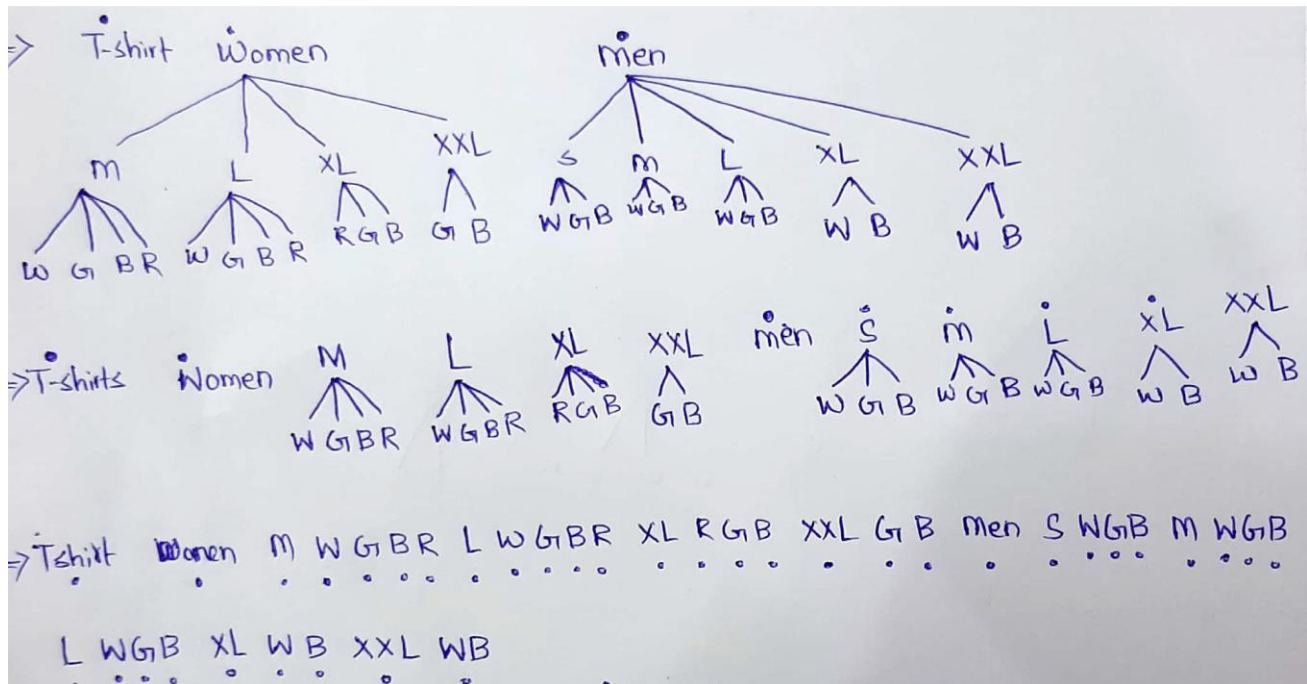 => T-shirt Women men
M L XL XXL S m L XL XXL
W G B R W G B R R G B G B W G B W G B W G B W B W B
=> T-shirts Women M L XL XXL men S m L XL XXL
W G B R W G B R R G B G B W G B W G B W G B W B W B
=> Tshirt Women M W G B R L W G B R XL R G B XXL G B Men S W G B M W G B
L W G B XL W B XXL W B